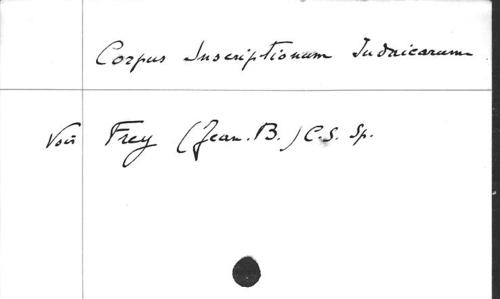 Corpus Inscriptionum Judaicarum
Voir Frey (Jean.B.) C.S. Sp.